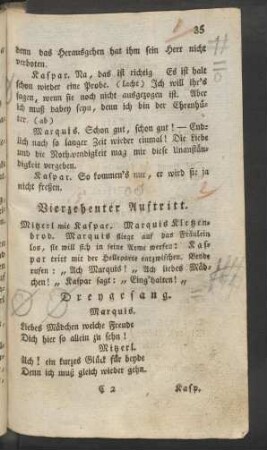 35
denn das Herausgeben hat ihm sein Herr nicht
verboten.
Kaspar. Na, das ist richtig. Es ist halt
schon wieder eine Probe. (lacht) Ich will ihr's
sagen, wenn sie noch nicht ausgezogen ist. Aber
ich muß dabey seyn, denn ich bin der Ehrenhü-
ter. (ab)
Marquis. Schon gut, schon gut! — End-
lich nach so langer Zeit wieder einmal! Die Liebe
und die Nothwendigkeit mag mir diese Unanstän-
digkeit vergeben.
Kaspar. So kommen's nur, er wird sie ja
nicht fressen.
Vierzehenter Auftritt.
Mitzerl mit Kaspar. Marquis Kletzen-
brod. Marquis fliegt auf das Fräulein
los, sie will sich in seine Arme werfen: Kas-
par tritt mit der Helleparte entzwischen. Beyde
rufen: „Ach Marquis! „ Ach liebes Mäd-
chen! „ Kaspar sagt: „ Eing'halten! „
Dreygesang.
Marquis.
Liebes Mädchen welche Freude
Dich hier so allein zu sehn!
Mitzerl.
Ach! ein kurzes Glück für beyde
Denn ich muß gleich wieder gehn.
C 2 Kasp.